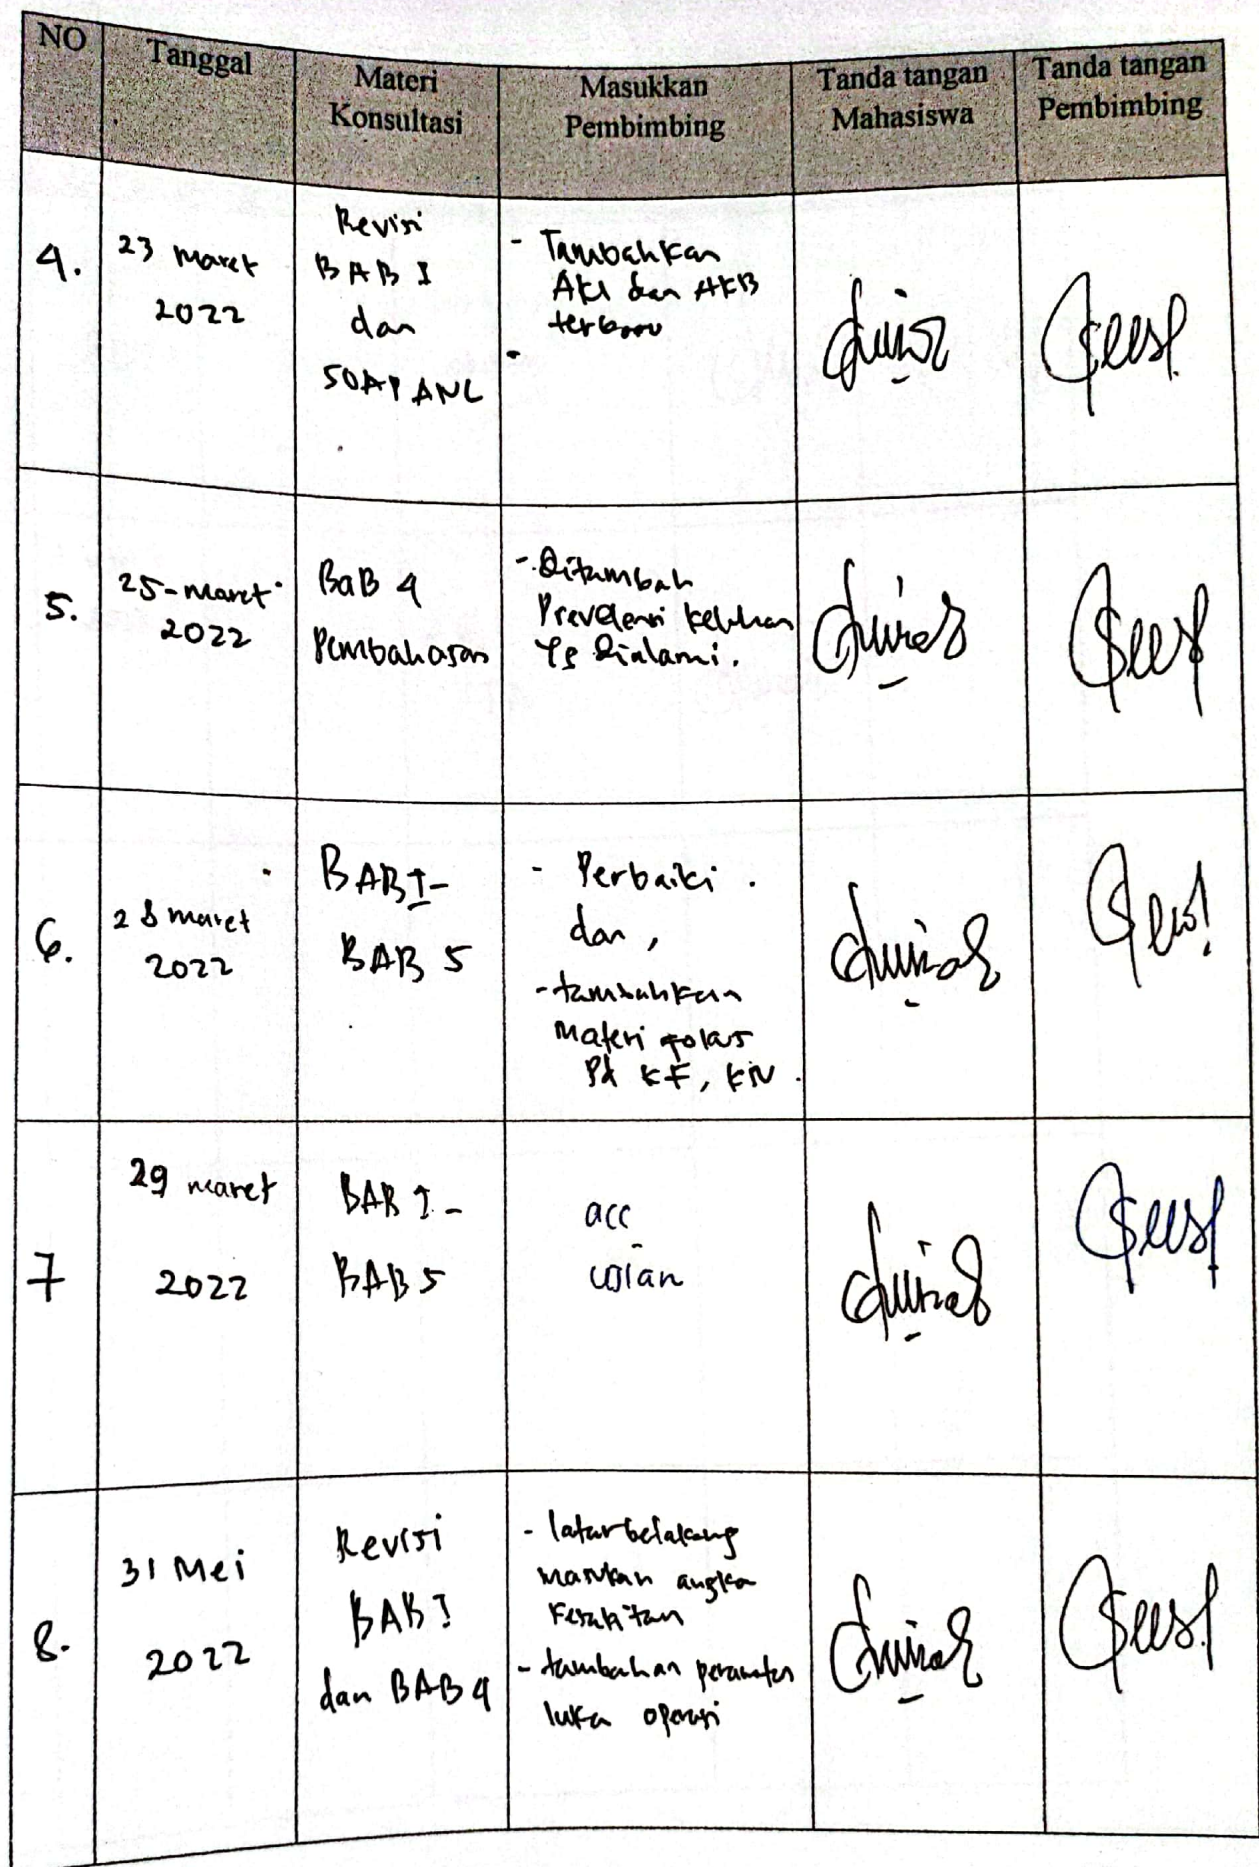 NO
Tanggal
Materi
Konsultasi
Masukkan
Pembimbing
Tanda tangan
Mahasiswa
Tanda tangan
Pembimbing
4.
23 maret
2022
Revisi
BAB I
dan
SOAP ANC
- Tambahkan
AKI dan AKB
terbaru
5.
25-maret
2022
BaB 4
Pembahasan
- Ditambah
Prevelensi keluhan
yg dialami.
6.
28 maret
2022
BAB I-
BAB 5
- Perbaiki.
dan,
- tambahkan
Materi
Pd KF, KN.
7
29 maret
2022
BAB I-
BAB 5
acc
ujian
8.
31 Mei
2022
Revisi
BAB I
dan BAB 4
- latar belakang
masukan angka
kesakitan
- tambahan perawatan
luka operasi